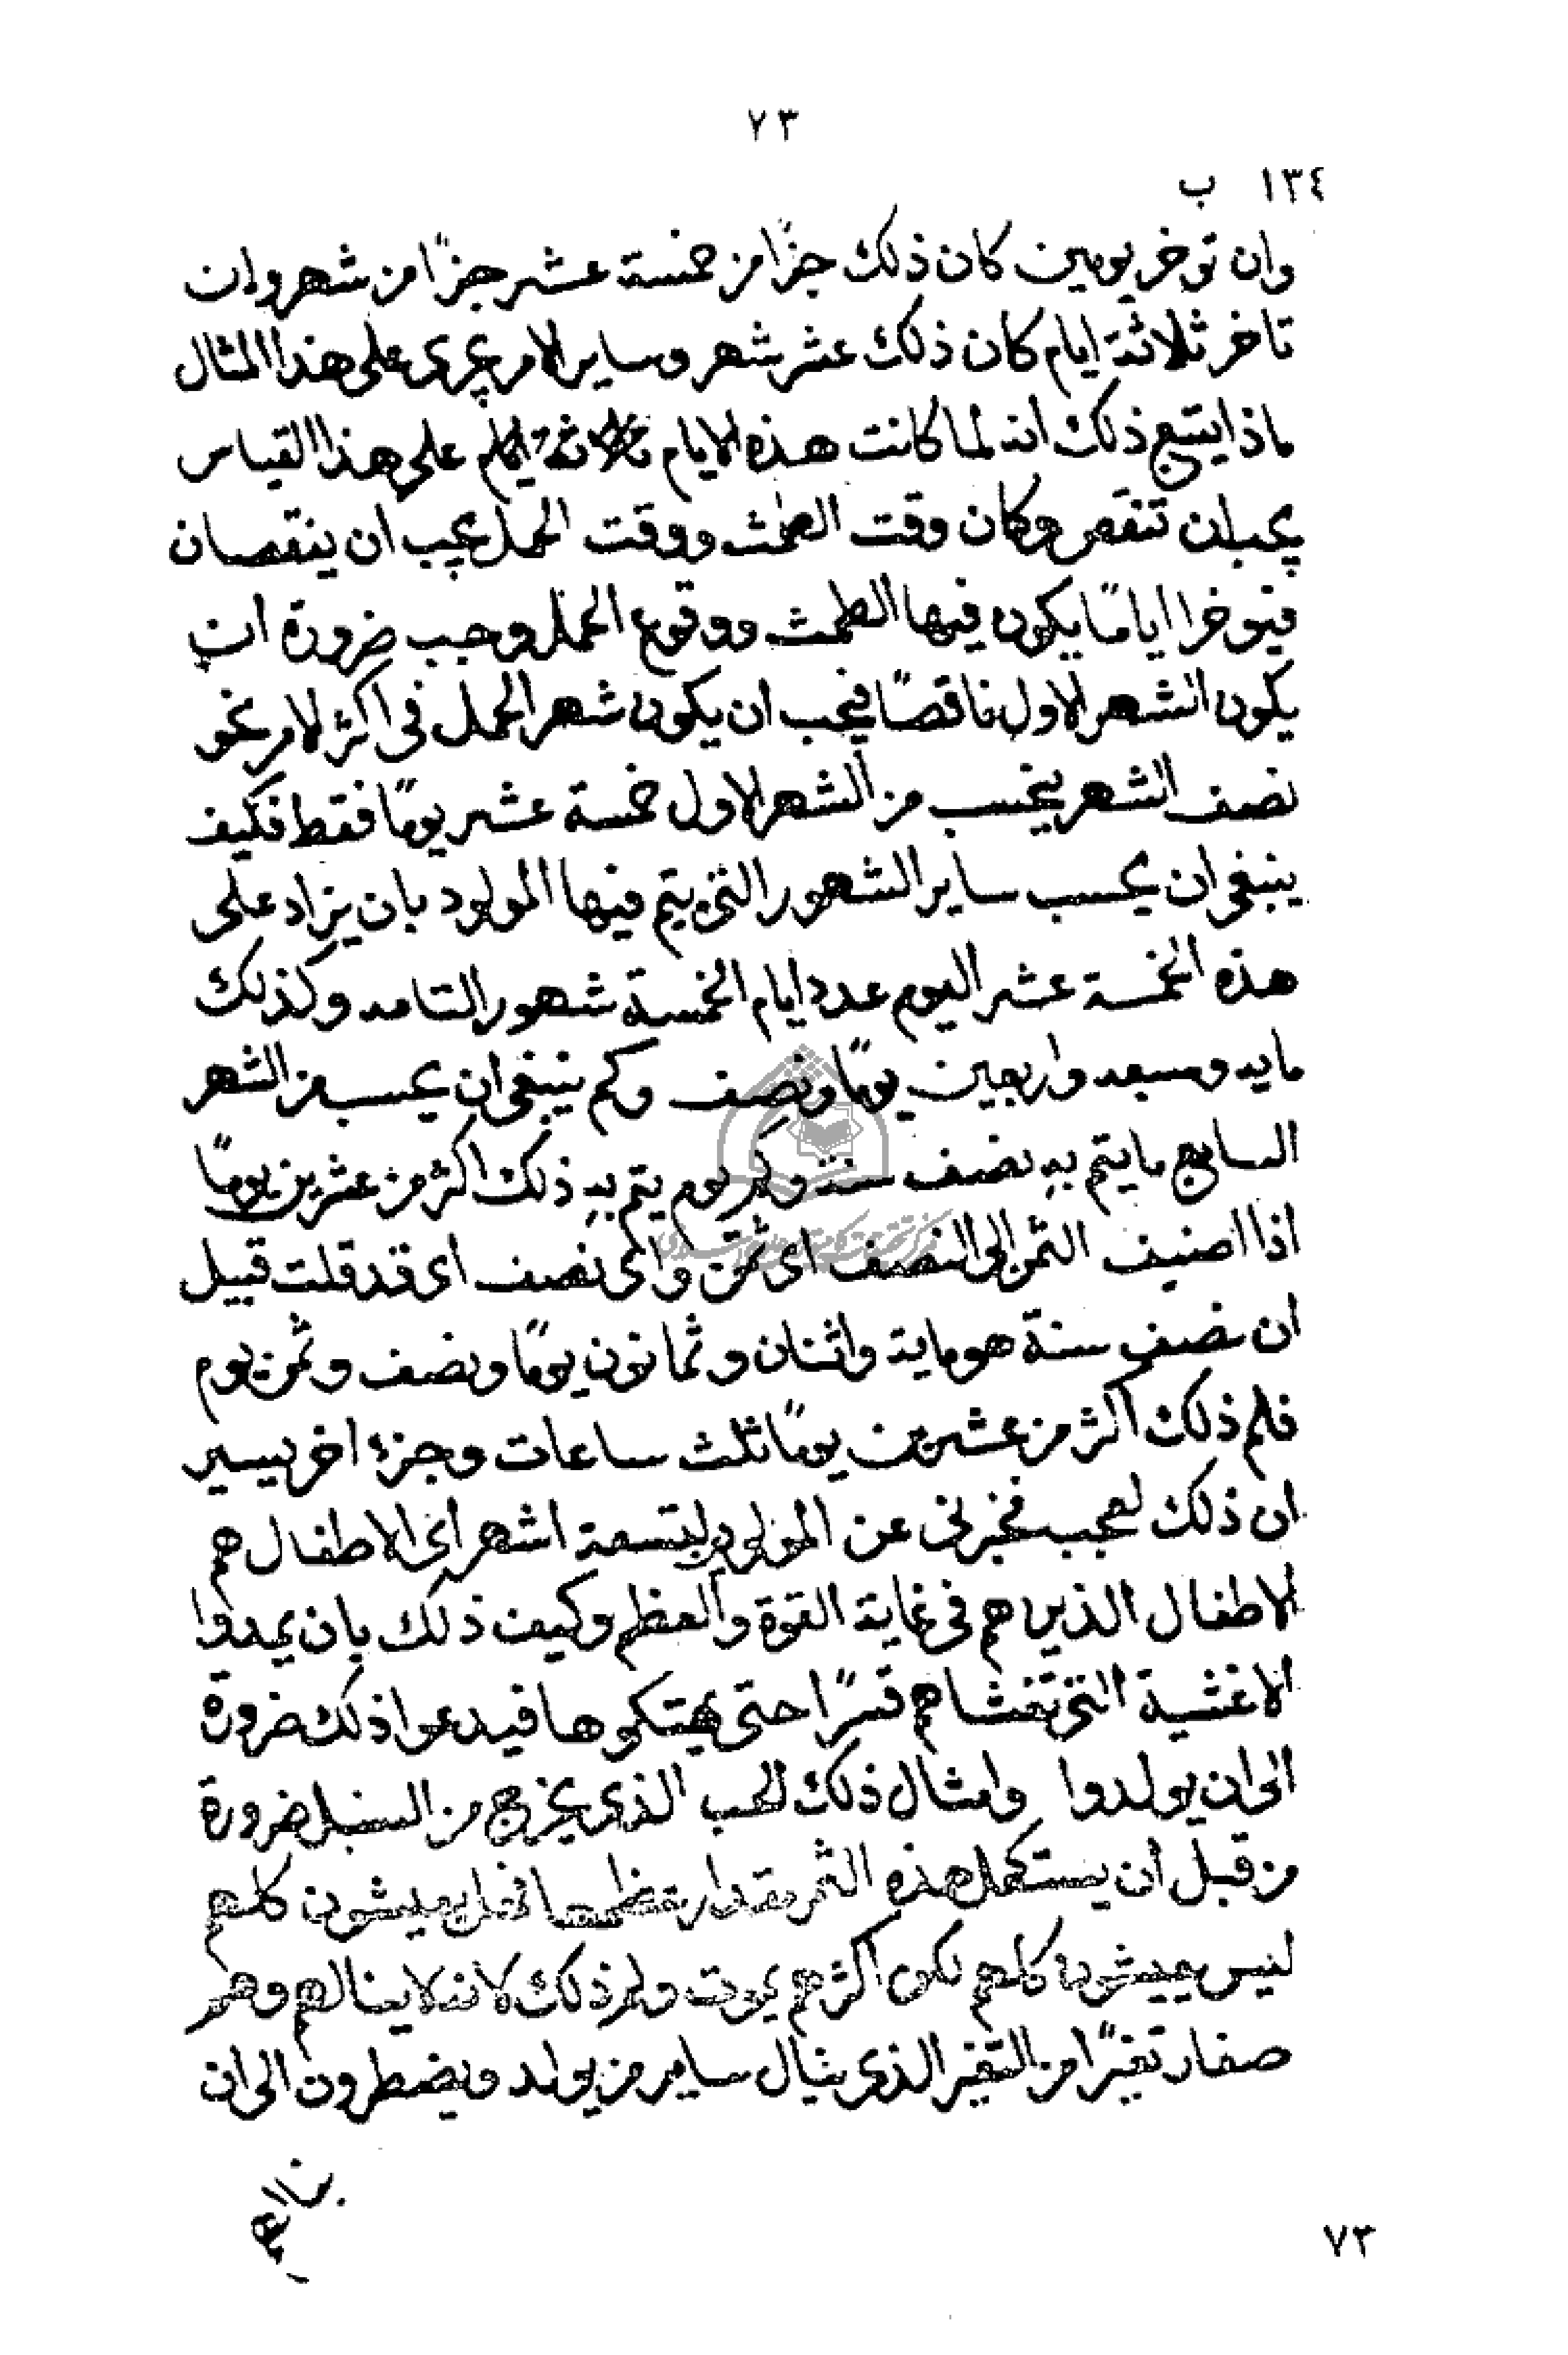 ٧٣
١٣٤ ب
وان توخر يومين كان ذلك جزًا من خمسة عشر جزًا من شهر وان
تاخر ثلاثة ايام كان ذلك عشر شهر وساير الامر يجرى على هذا المثال
ماذا يتبع ذلك انه لما كانت هذه الايام على هذا القياس
يجب ان تنقص وكان وقت الطمث ووقت الحمل يجب ان ينقصان
فيوخرا اياما يكون فيها الطمث ووقوع الحمل وجب ضرورة ان
يكون الشهر الاول ناقصًا فيجب ان يكون شهر الحمل فى اكثر الامر نحو
نصف الشهر يحسب من الشهر الاول خمسة عشر يومًا فقط فكيف
ينبغى ان يحسب ساير الشهور التى يتم فيها المولود بان يزاد على
هذه الخمسة عشر اليوم عدد ايام الخمسة شهور التامه وكذلك
مايه وسبعه واربعين يومًا ونصف وكم ينبغى ان يحسب من الشهر
السابع ما يتم به نصف سنة وكم يوم يتم به ذلك اكثر من عشرين يومًا
اذا اضيف الثمن الى النصف اى ثمن واى نصف اى قد قلت قبيل
ان نصف سنة هو ماية واثنان وثمانون يومًا ونصف وثمن يوم
فلم ذلك اكثر من عشرين يومًا ثلث ساعات وجزء اخر يسير
ان ذلك لعجب فخبرنى عن المولود لتسعة اشهر اى الاطفال هم
الاطفال الذين هم فى غاية القوة والعظم وكيف ذلك بان يمددوا
الاغشية التى تغشاهم قسرًا حتى يهتكوها فيدعوا ذلك ضرورة
الى ان يولدوا وامثال ذلك الحب الذى يخرج من السنبل ضرورة
من قبل ان يستكمل هذه الثمر مقدار عظمها فهل يعيشون كلهم
ليس يعيشون كلهم لكن اكثرهم يموت ولم ذلك لانه لا ينالهم وهم
صغار تغيرًا من التغير الذى ينال ساير من يولد ويضطرون الى ان
٧٣